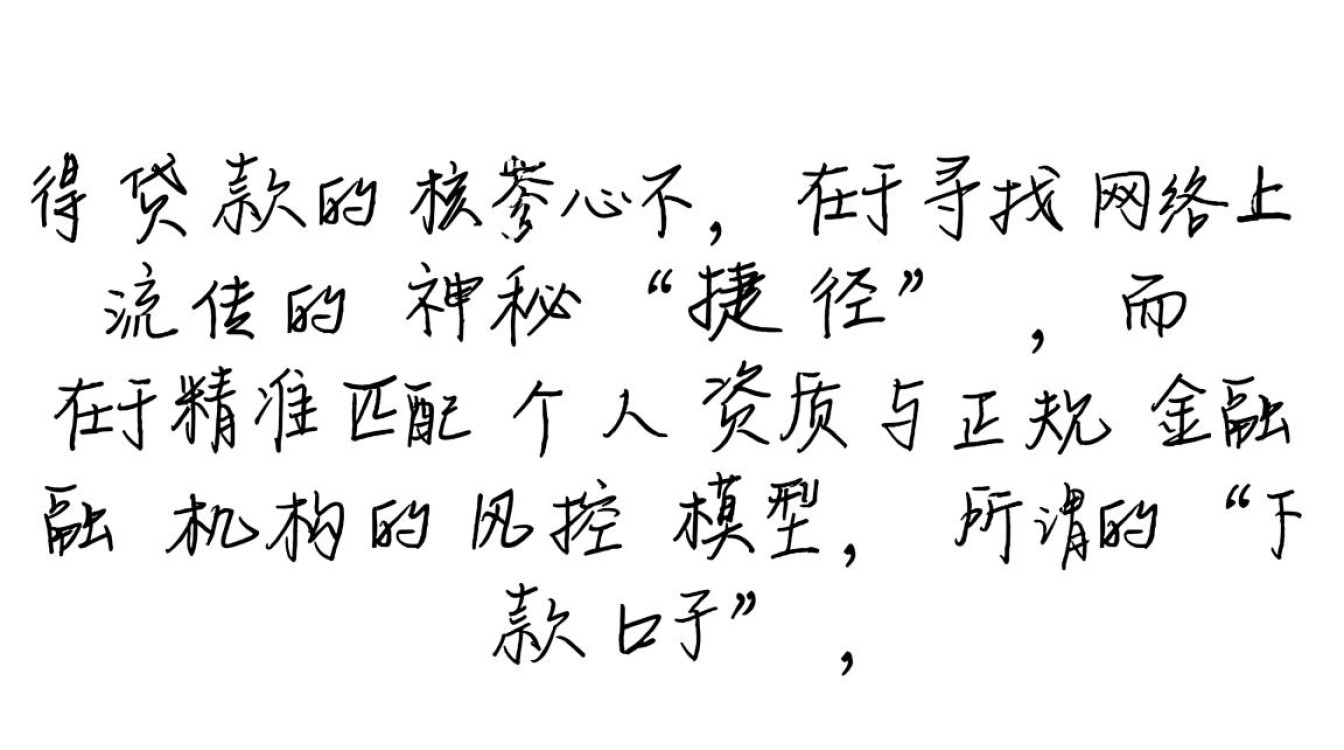 得贷款的核心不,在于寻找网络上
流传的神秘“捷径”,而
在于精准匹配个人资质与正规金融
融机构的风控模型,所谓的“下
款口子”,